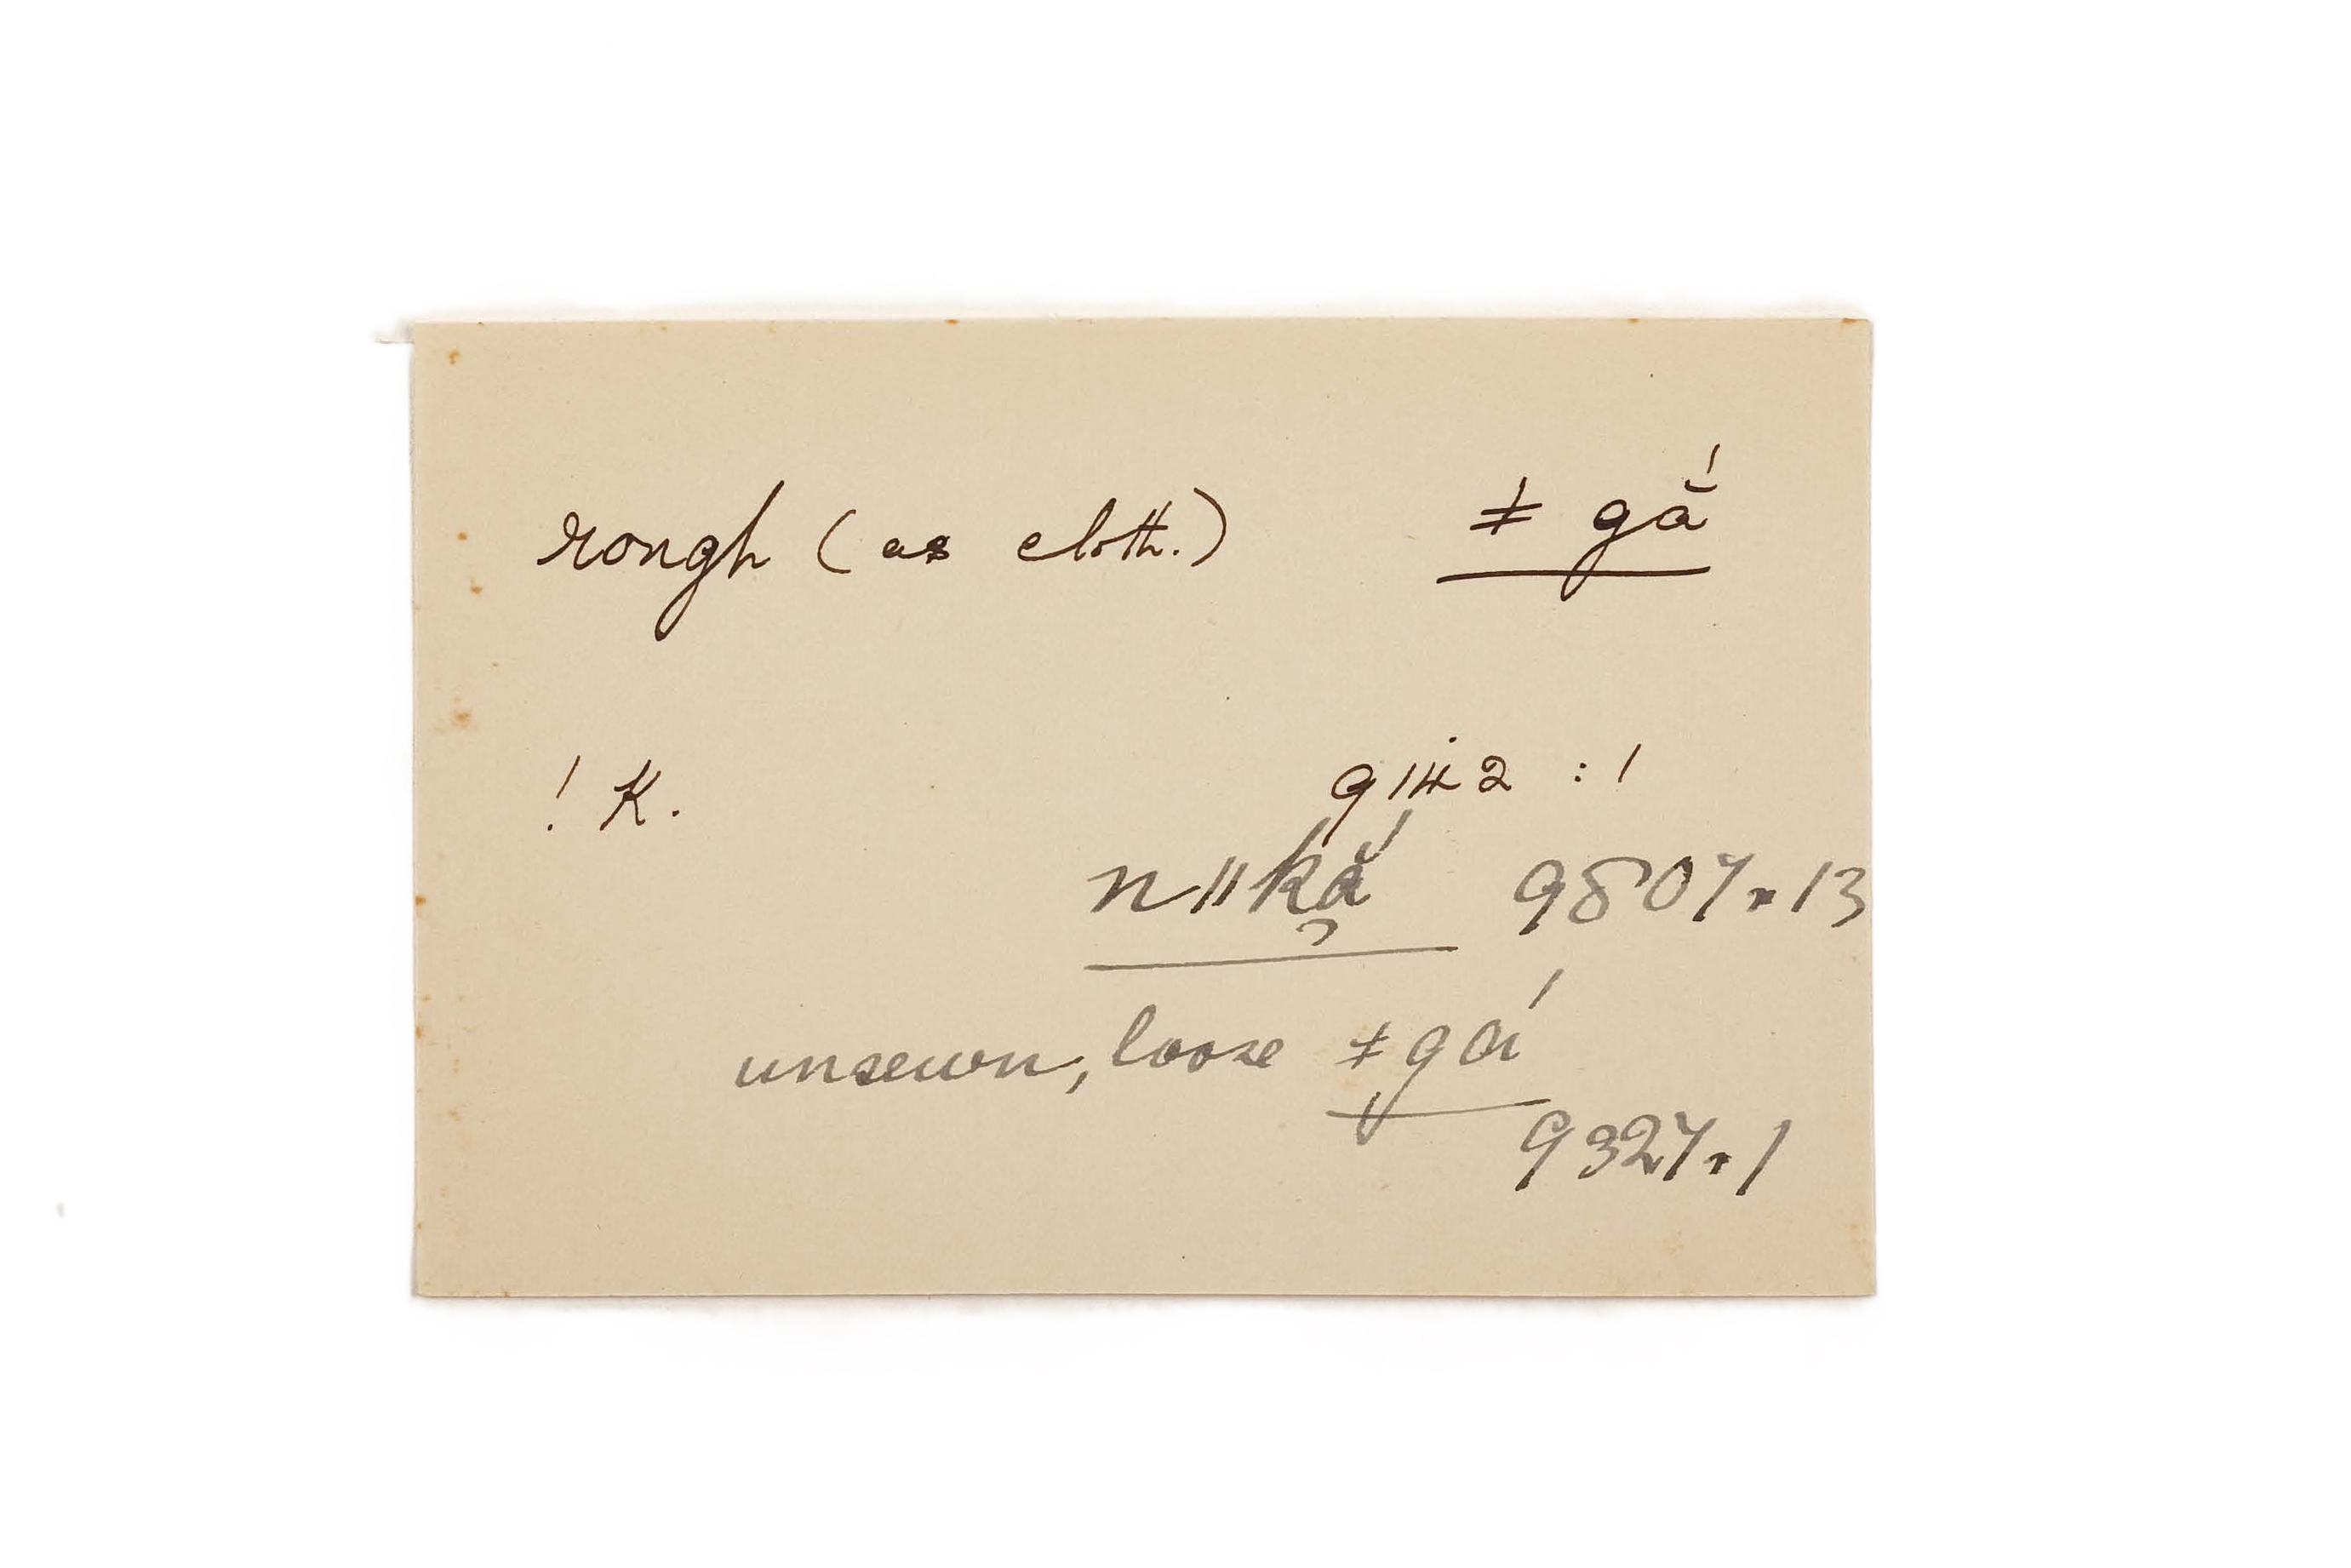 rough (as cloth.) ǂ gắ
! K. 9142 : 1
nǁkắ̭ 9807.13
unsewn, loose ǂgá́
9327.1